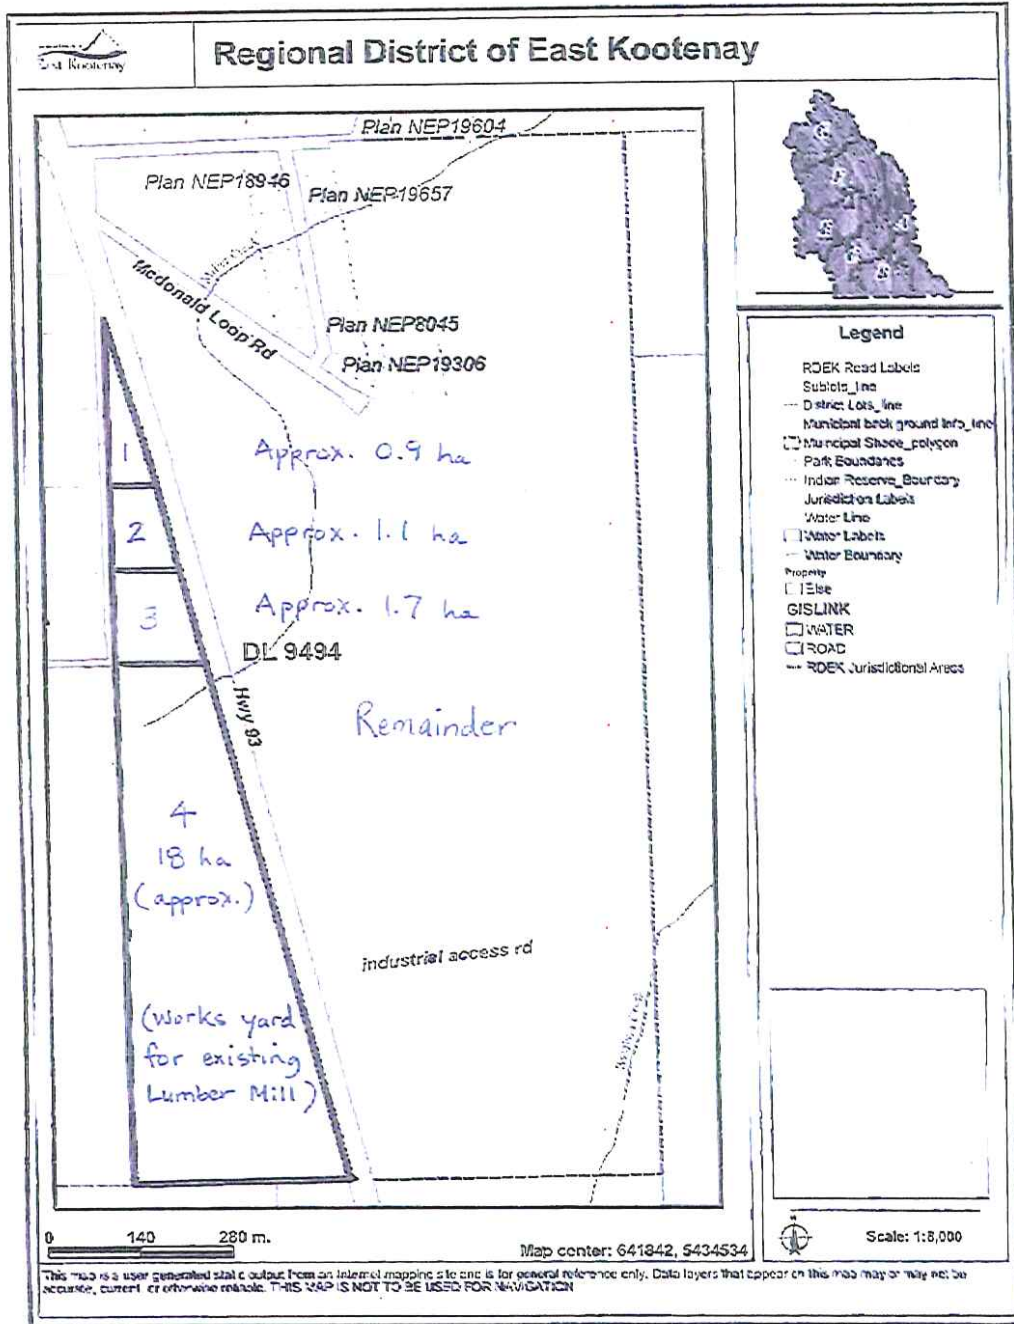 East Kootenay
Regional District of East Kootenay
Plan NEP19604
Plan NEP18946
Plan NEP19657
Mcdonald Loop Rd
Plan NEP8045
Plan NEP19306
1
Approx. 0.9 ha
2
Approx. 1.1 ha
3
Approx. 1.7 ha
DL 9494
Hwy 93
Remainder
4
18 ha
(approx.)
industrial access rd
(Works yard
for existing
Lumber Mill)
Legend
RDEK Road Labels
Sublots_line
District Lots_line
Municipal back ground info_line
Municipal Shade_polygon
Park Boundaries
Indian Reserve_Boundary
Jurisdiction Labels
Water Line
Water Labels
Water Boundary
Property
Else
GISLINK
WATER
ROAD
RDEK Jurisdictional Areas
0 140 280 m.
Map center: 641842, 5434534
Scale: 1:8,000
This map is a user generated static output from an Internet mapping site and is for general reference only. Data layers that appear on this map may or may not be
accurate, current, or otherwise reliable. THIS MAP IS NOT TO BE USED FOR NAVIGATION